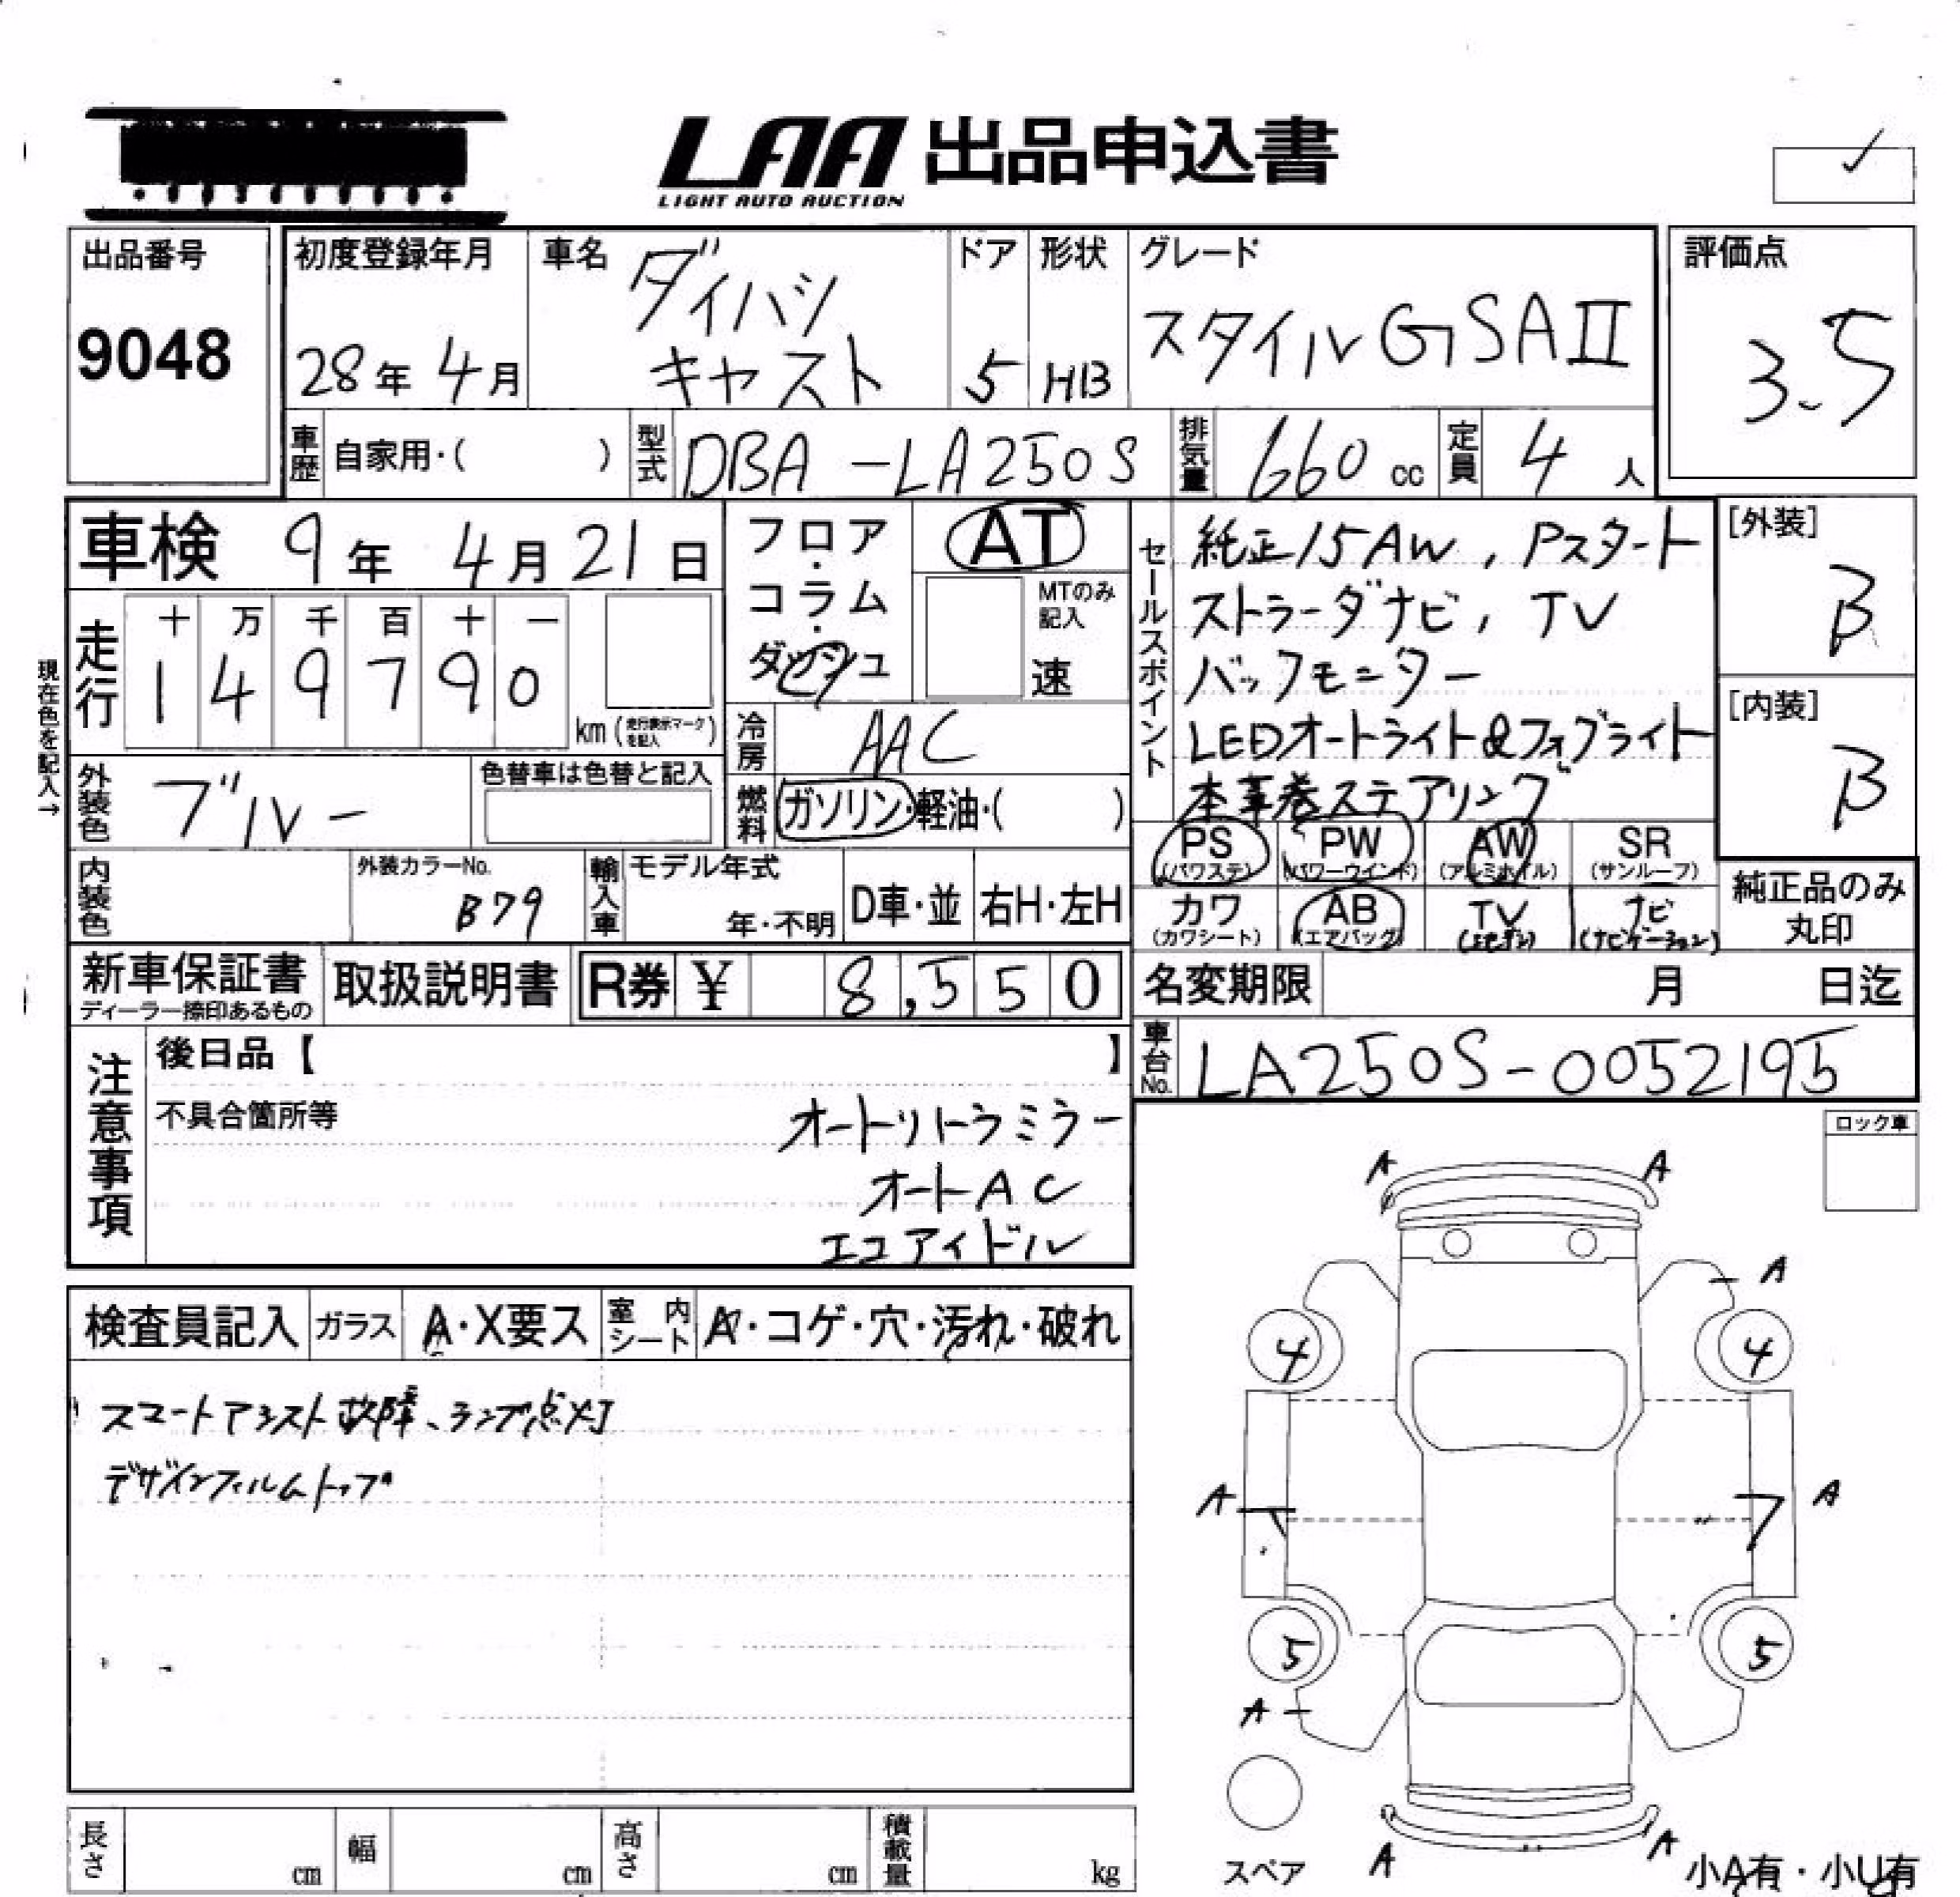 LAA 出品申込書
LIGHT AUTO AUCTION
出品番号
9048
初度登録年月
28年 4月
車名
ダイハツ
キャスト
ドア
5
形状
HB
グレード
スタイルGSAⅡ
評価点
3.5
車歴 自家用・( )
型式 DBA-LA250S
排気量 660 cc
定員 4 人
車検 9年 4月 21日
フロア・コラム・ダッシュ
AT
MTのみ記入
速
セールスポイント
純正15AW, Pスタート
ストラーダナビ, TV
バックモニター
LEDオートライト&フォグライト
本革巻ステアリング
[外装]
B
[内装]
B
現在色を記入→
走行
十 万 千 百 十 一
1 4 9 7 9 0
km (走行表示マークを記入)
冷房 AAC
外装色 ブルー
色替車は色替と記入
燃料 ガソリン・軽油・( )
PS (パワステ) PW (パワーウインド) AW (アルミホイル) SR (サンルーフ)
カワ (カワシート) AB (エアバッグ) TV ナビ (ナビゲーション)
純正品のみ丸印
内装色
外装カラーNo.
B79
輸入車 モデル年式
年・不明
D車・並
右H・左H
新車保証書
ディーラー捺印あるもの
取扱説明書
R券 ¥ 8,550
名変期限 月 日迄
車台No. LA250S-0052195
注意事項
後日品【 】
不具合箇所等
オートリトラミラー
オートAC
エコアイドル
ロック車
検査員記入 ガラス A・X要ス 室内シート A・コゲ・穴・汚れ・破れ
スマートアシスト故障、ランプ点灯
デザインフィルムトップ
A A
A
4 4
A A
5 5
A
スペア
A A
小A有・小U有
長さ cm 幅 cm 高さ cm 積載量 kg